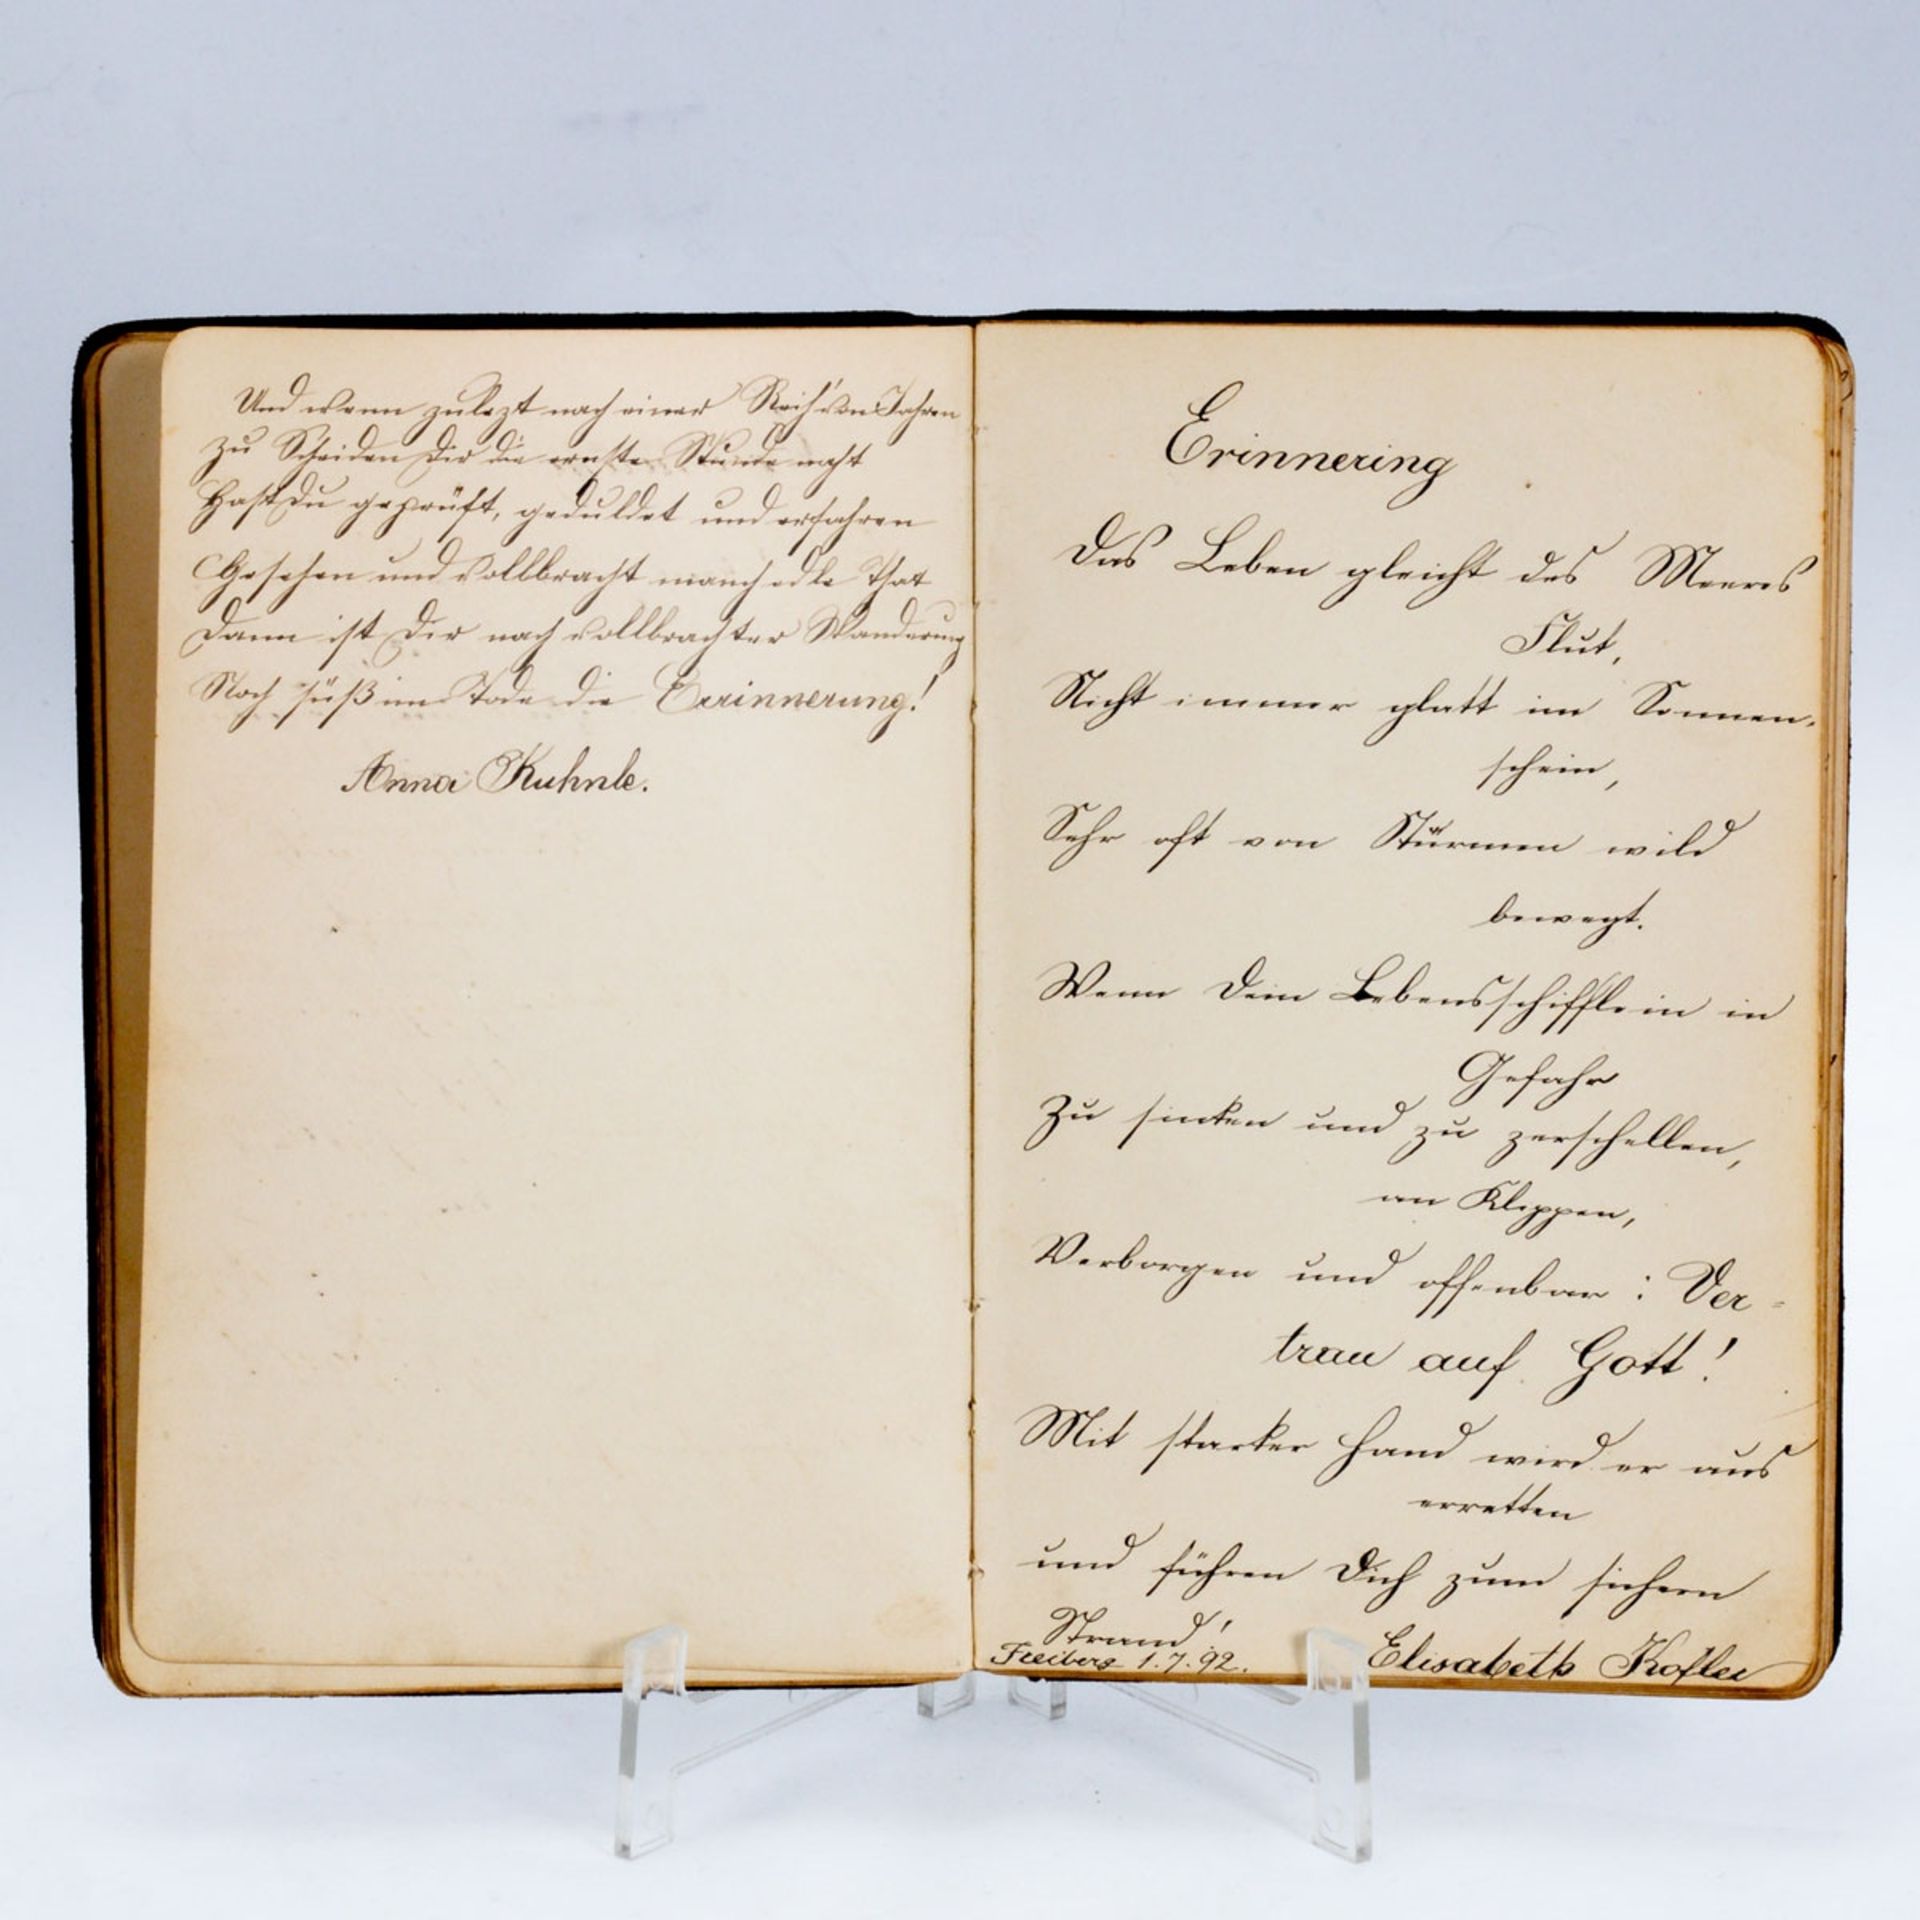 Und wenn zulezt nach einer Reih' von Jahren
Zu Scheiden Dir die ernste Stunde naht
Hast Du geprüft, geduldet und erfahren
Gesehen und vollbracht manch edle That
Dann ist Dir nach vollbrachter Wanderung
Noch süß im Tode die Errinnerung!
Anna Kuhnle.
Erinnering
Das Leben gleicht des Meeres
Flut,
Nicht immer glatt im Sonnen-
schein,
Sehr oft von Stürmen wild
bewegt.
Wenn Dein Lebensschifflein in
Gefahr
Zu sinken und zu zerschellen,
an Klippen,
Verborgen und offenbar: Ver-
trau auf Gott!
Mit starker Hand wird er aus
erretten
und führen Dich zum sichern
Strand!
1.7.92.
Elisabeth Kofler